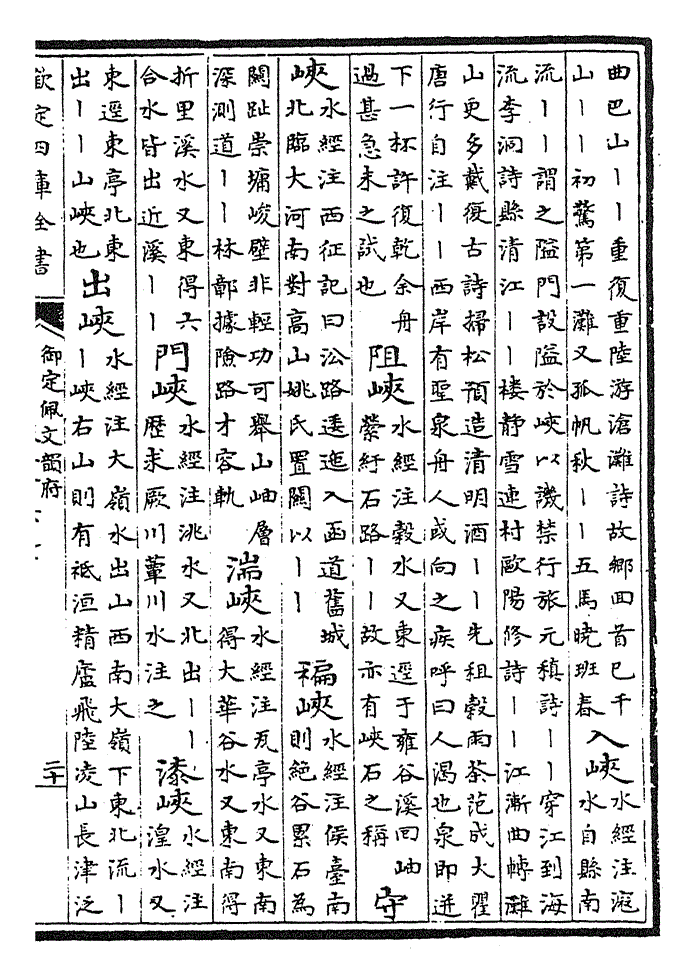 曲巴山丨丨重復重陸游滄灘詩故鄉回首已千
山丨丨初驚第一灘又孤帆秋丨丨五馬曉班春
入峽
水經注漚
水自縣南
流丨丨謂之隘門設隘於峽以譏禁行旅元稹詩丨丨穿江到海
流李洞詩縣清江丨丨楼静雪連村歐陽修詩丨丨江漸曲轉灘
山更多戴復古詩掃松預造清明酒丨丨先租穀雨茶范成大瞿
唐行自注丨丨西岸有聖泉舟人或向之疾呼曰人渴也泉即迸
下一杯許復乾余舟
過甚急未之試也
阻峽
水經注穀水又東逕于雍谷溪回岫
縈紆石路丨丨故亦有峽石之稱
守
峽
水經注西征記曰沿路逶迤入函道舊城
北臨大河南對高山姚氏置關以丨丨
稨峽
水經注侯臺南
則絕谷累石為
關趾崇墉峻壁非輕功可舉山岫層
深測道丨丨林鄣據險路才容軌
湍峽
水經注瓦亭水又東南
得大華谷水又東南得
折里溪水又東得六
合水皆出近溪丨丨
門峽
水經注洮水又北出丨丨
歷求厥川蕈川水注之
漆峽
水經注
湟水又
東逕東亭北東
出丨丨山峽也
出峽
水經注大嶺水出山西南大嶺下東北流丨
丨峽右山則有祇洹精廬飛陸凌山長津泛
欽定四庫全書
御定佩文韻府
二十